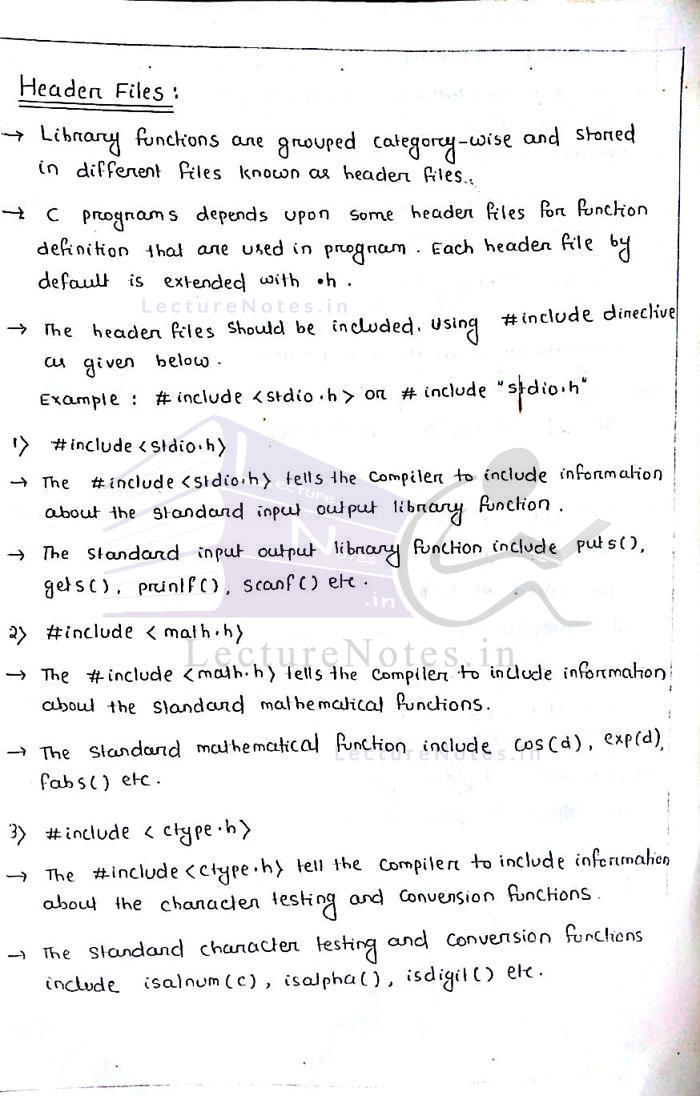 Header Files :
→ Library functions are grouped category-wise and stored
in different files known as header files.
→ C programs depends upon some header files for function
definition that are used in program. Each header file by
default is extended with .h.
LectureNotes.in
→ The header files should be included. using #include directive
as given below.
Example : #include <stdio.h> or #include "stdio.h"
1) #include <stdio.h>
→ The #include <stdio.h> tells the compiler to include information
about the standard input output library function.
→ The standard input output library function include puts(),
gets(), printf(), scanf() etc.
2) #include <math.h>
LectureNotes.in
→ The #include <math.h> tells the compiler to include information
about the standard mathematical functions.
→ The standard mathematical function include cos(d), exp(d),
LectureNotes.in
fabs() etc.
3) #include <ctype.h>
→ The #include <ctype.h> tell the compiler to include information
about the character testing and conversion functions.
→ The standard character testing and conversion functions
include isalnum(c), isalpha(), isdigit() etc.